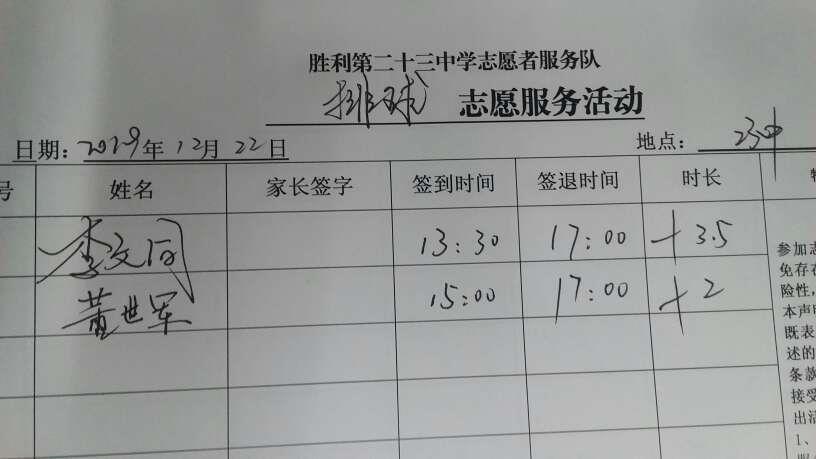 胜利第二十三中学志愿者服务队
排球 志愿服务活动
日期：2019年12月22日
地点：23中
号 姓名 家长签字 签到时间 签退时间 时长
李文同 13:30 17:00 +3.5
董世军 15:00 17:00 +2
参加志
免存在
险性，
本声明
既表
述的
条款
接受
出活
1、